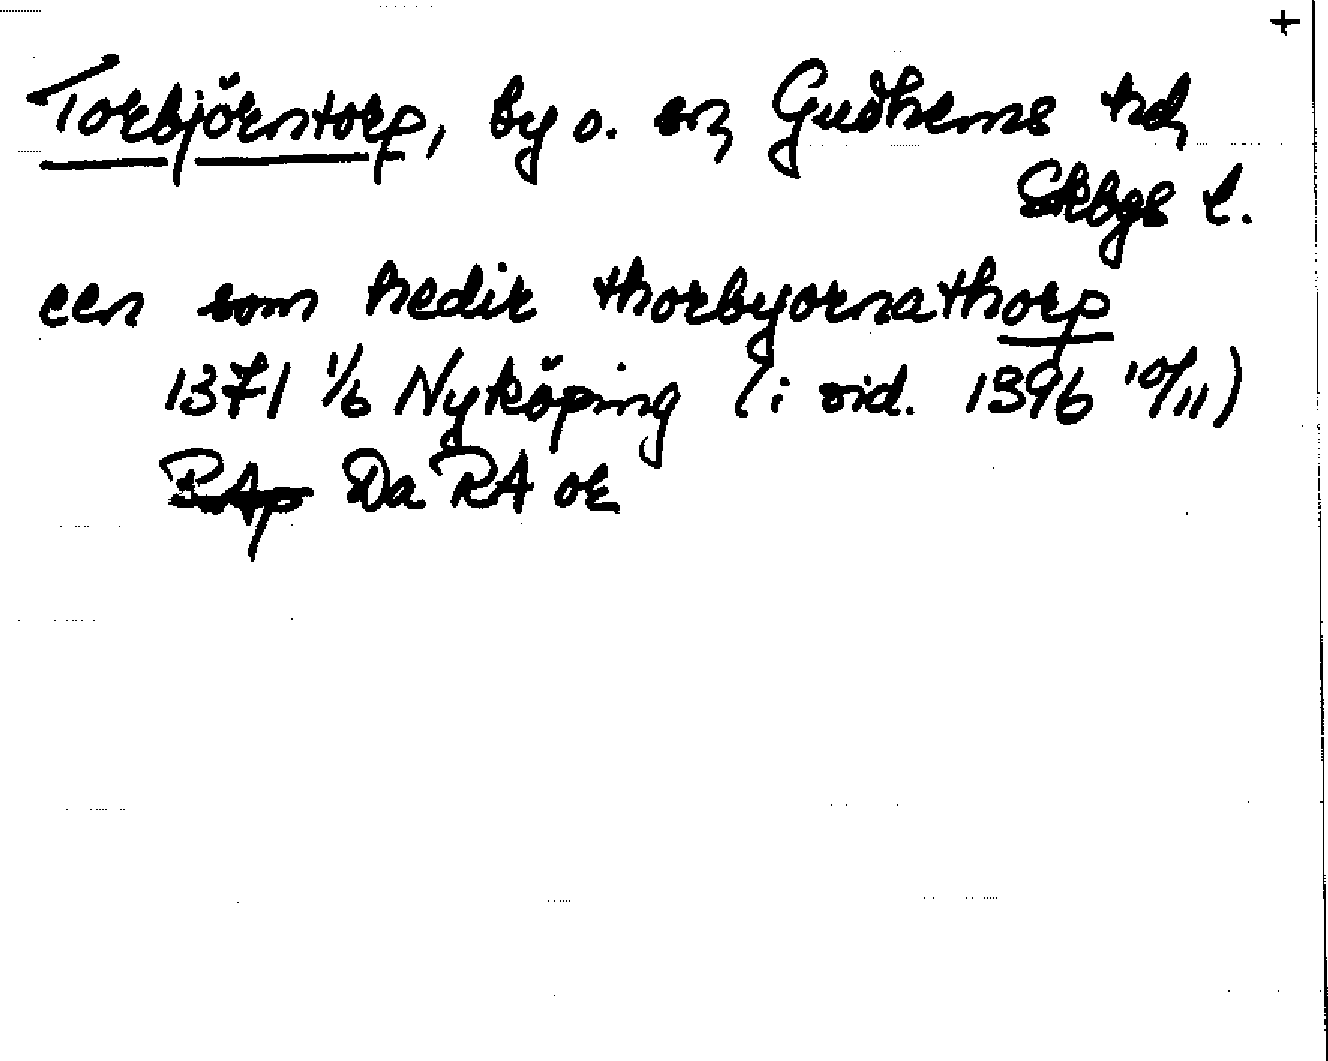 +
Torbjörntorp, by o. sn, Gudhems hd,
Skbgs l.
een som hedir thorbyornathorp
1371 1/6 Nyköping (i vid. 1396 10/11)
RAp Da RA or